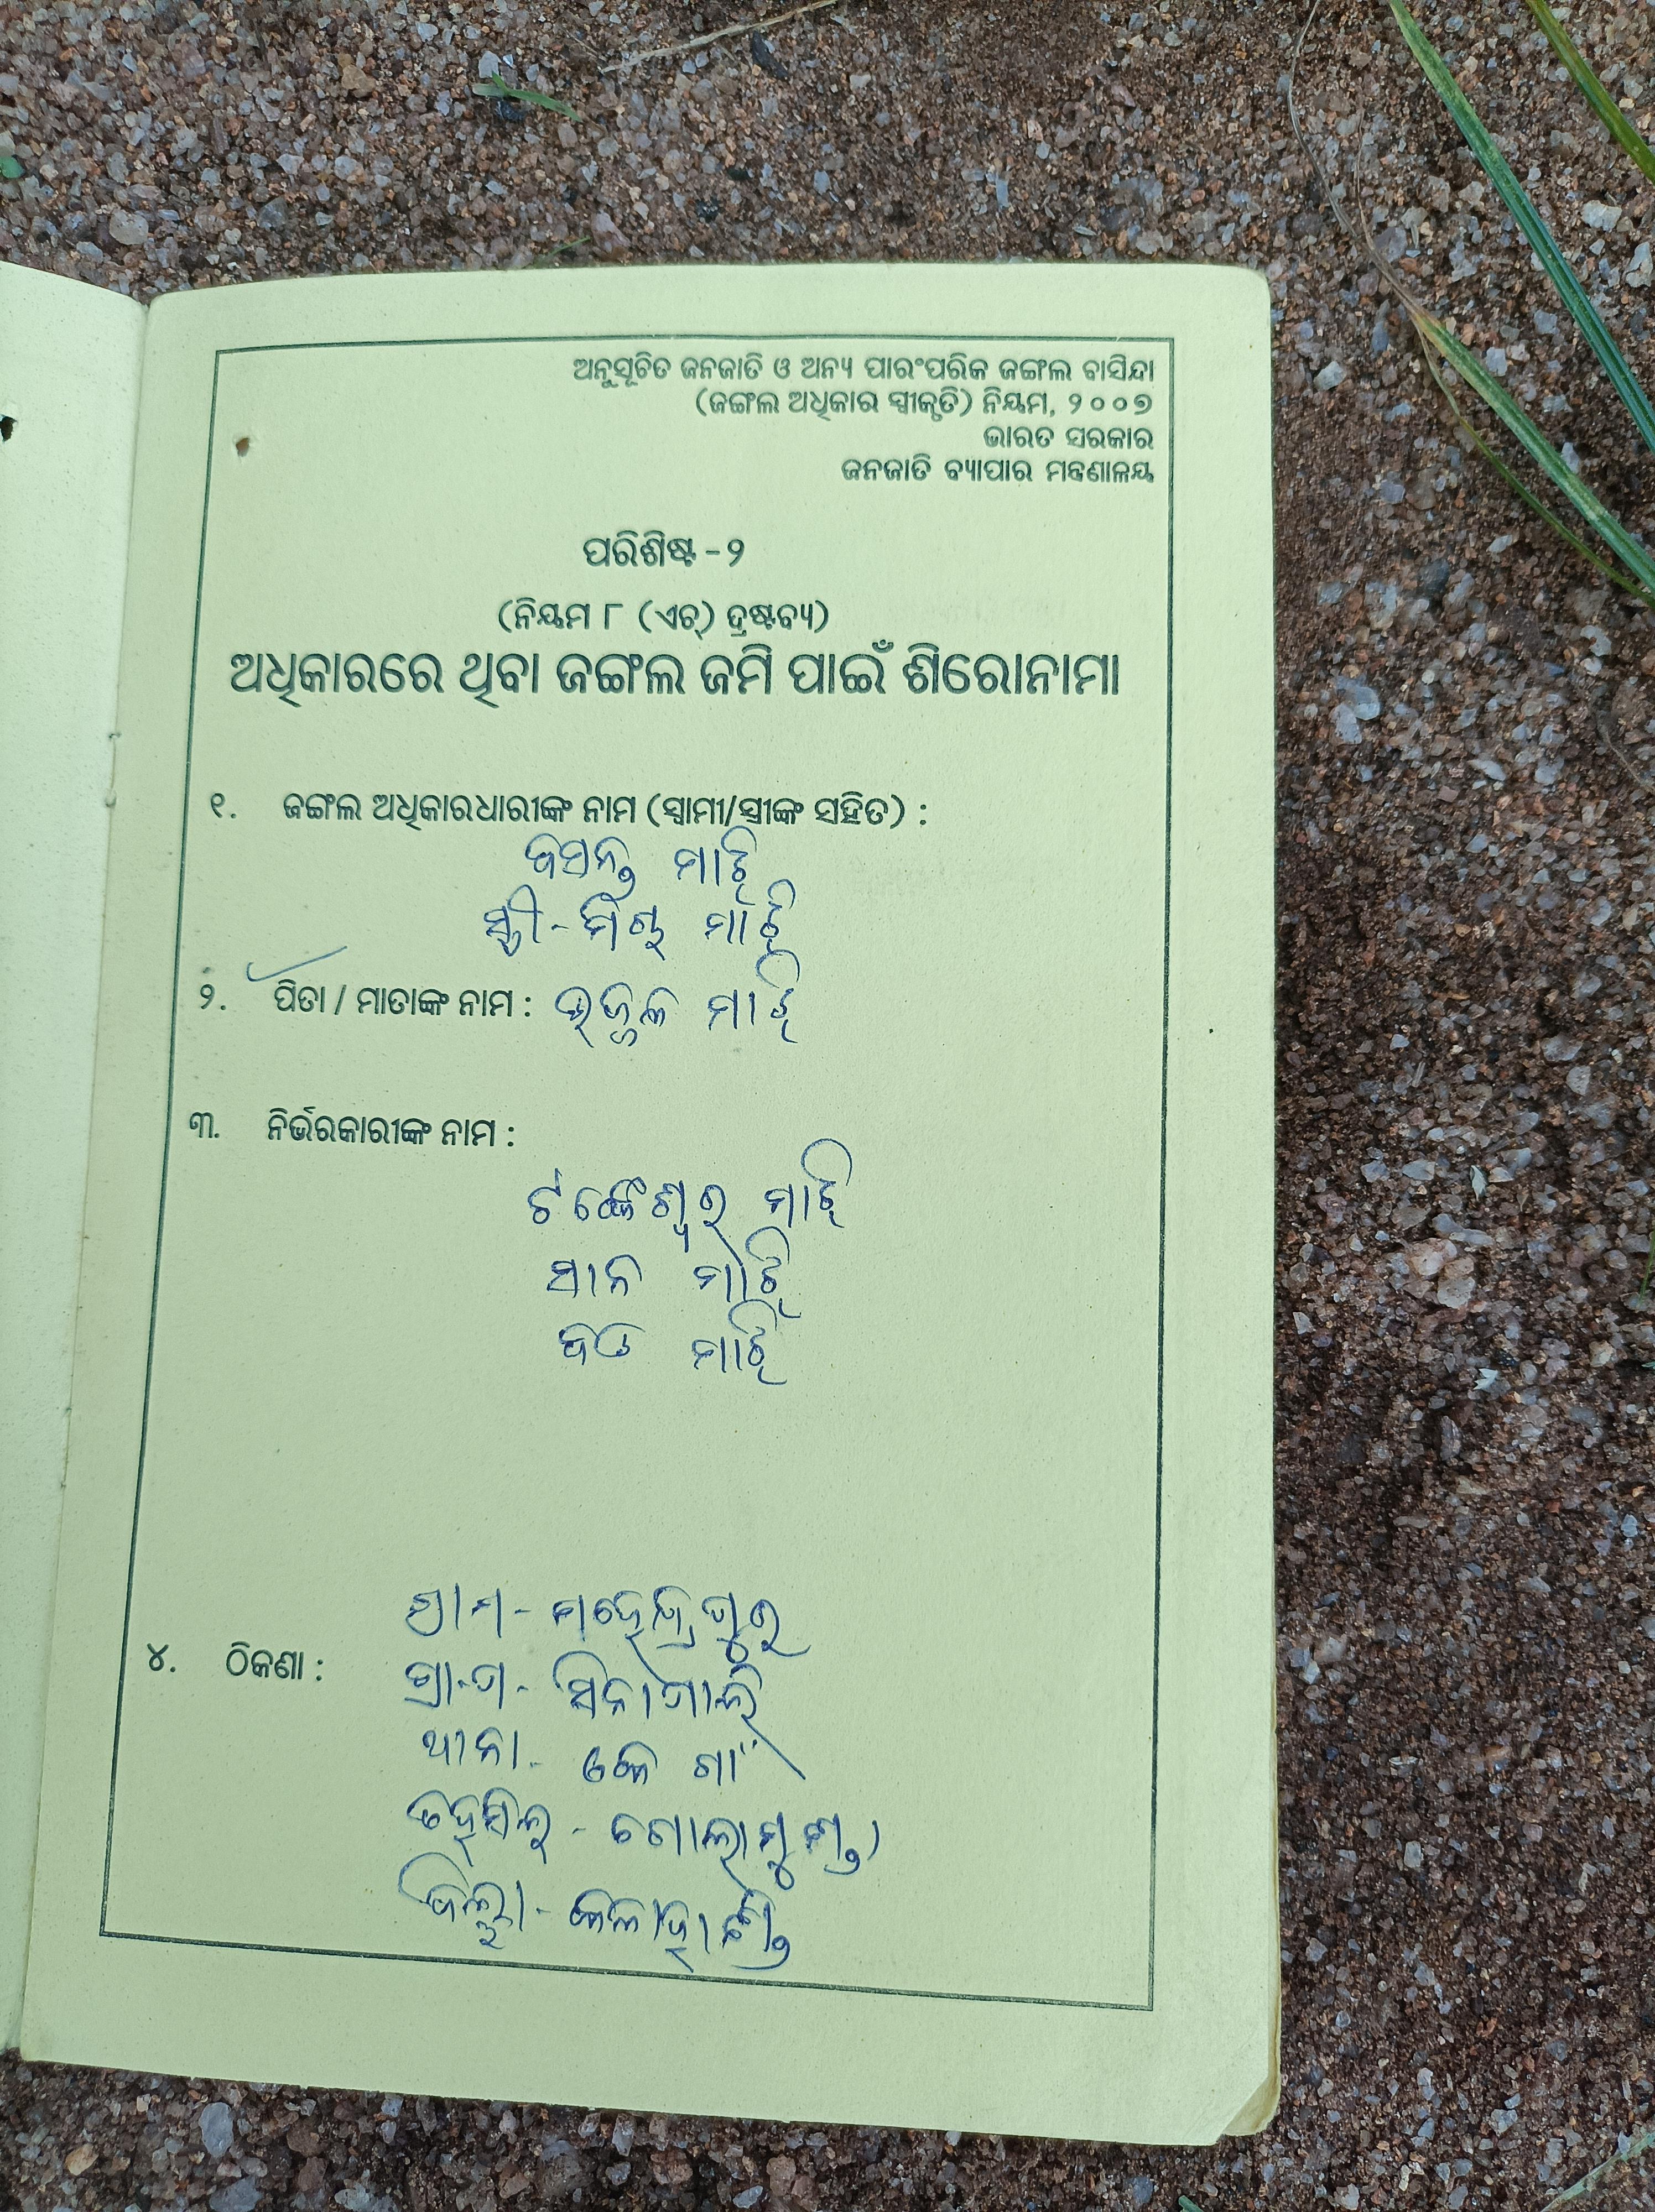 ଅନୁସୂଚିତ ଜନଜାତି ଓ ଅନ୍ୟ ପାରଂପରିକ ଜଙ୍ଗଲ ବାସିନ୍ଦା
(ଜଙ୍ଗଲ ଅଧିକାର ସ୍ୱୀକୃତି) ନିୟମ, ୨୦୦୭
ଭାରତ ସରକାର
ଜନଜାତି ବ୍ୟାପାର ମନ୍ତ୍ରଣାଳୟ
ପରିଶିଷ୍ଟ - ୨
(ନିୟମ ୮ (ଏଚ୍) ଦ୍ରଷ୍ଟବ୍ୟ)
ଅଧିକାରରେ ଥିବା ଜଙ୍ଗଲ ଜମି ପାଇଁ ଶିରୋନାମା
୧. ଜଙ୍ଗଲ ଅଧିକାରଧାରୀଙ୍କ ନାମ (ସ୍ୱାମୀ/ସ୍ତ୍ରୀଙ୍କ ସହିତ) :
ବସନ୍ତ ମାଝି
ସ୍ତ୍ରୀ - ମାଝି
୨. ପିତା / ମାତାଙ୍କ ନାମ : ମାଝି
୩. ନିର୍ଭରକାରୀଙ୍କ ନାମ :
ଟଙ୍କେଶ୍ୱର ମାଝି
ସାନ ମାଝି
ବଡ ମାଝି
ଗ୍ରାମ - ମହେନ୍ଦ୍ରପୁର
୪. ଠିକଣା : ଗ୍ରା.ପ -
ଥାନା - କେଗାଁ
ତହସିଲ - ଗୋଲାମୁଣ୍ଡା
ଜିଲ୍ଲା - କଳାହାଣ୍ଡି